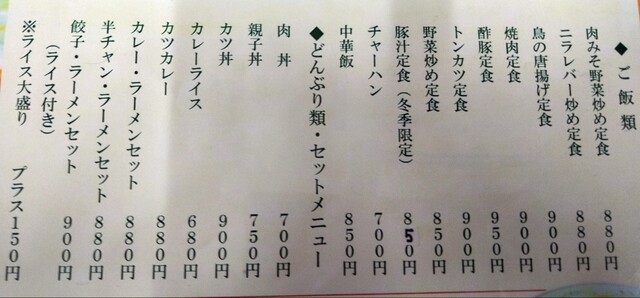 ◆ご飯類
肉みそ野菜炒め定食 880円
ニラレバー炒め定食 880円
鳥の唐揚げ定食 900円
焼肉定食 900円
酢豚定食 950円
トンカツ定食 900円
野菜炒め定食 850円
豚汁定食(冬季限定) 850円
チャーハン 700円
中華飯 850円
◆どんぶり類・セットメニュー
肉丼 700円
親子丼 750円
カツ丼 900円
カレーライス 680円
カツカレー 880円
カレー・ラーメンセット 880円
半チャン・ラーメンセット 880円
餃子・ラーメンセット 900円
(ライス付き)
※ライス大盛り プラス150円